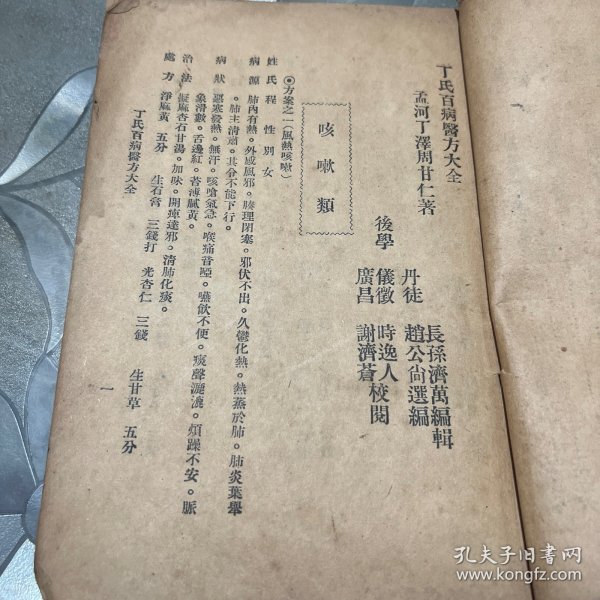 丁氏百病醫方大全
孟河丁澤周甘仁著
長孫濟萬編輯
丹徒 趙公尙選編
後學 儀徵 時逸人校閱
廣昌 謝濟蒼
咳嗽類
◉方案之一(風熱咳嗽)
姓氏 程 性別 女
病源 肺內有熱。外感風邪。腠理閉塞。邪伏不出。久鬱化熱。熱蒸於肺。肺炎葉舉
。肺主清肅。其令不能下行。
病狀 惡寒發熱。無汗。咳嗆氣急。喉痛音啞。嚥飲不便。痰聲漉漉。煩躁不安。脈
象滑數。舌邊紅。苔薄膩黃。
治法 擬麻杏石甘湯。加味。開痺達邪。清肺化痰。
處方 淨麻黃 五分 生石膏 三錢打 光杏仁 三錢 生甘草 五分
丁氏百病醫方大全
一
孔夫子旧书网
www.kongfz.com